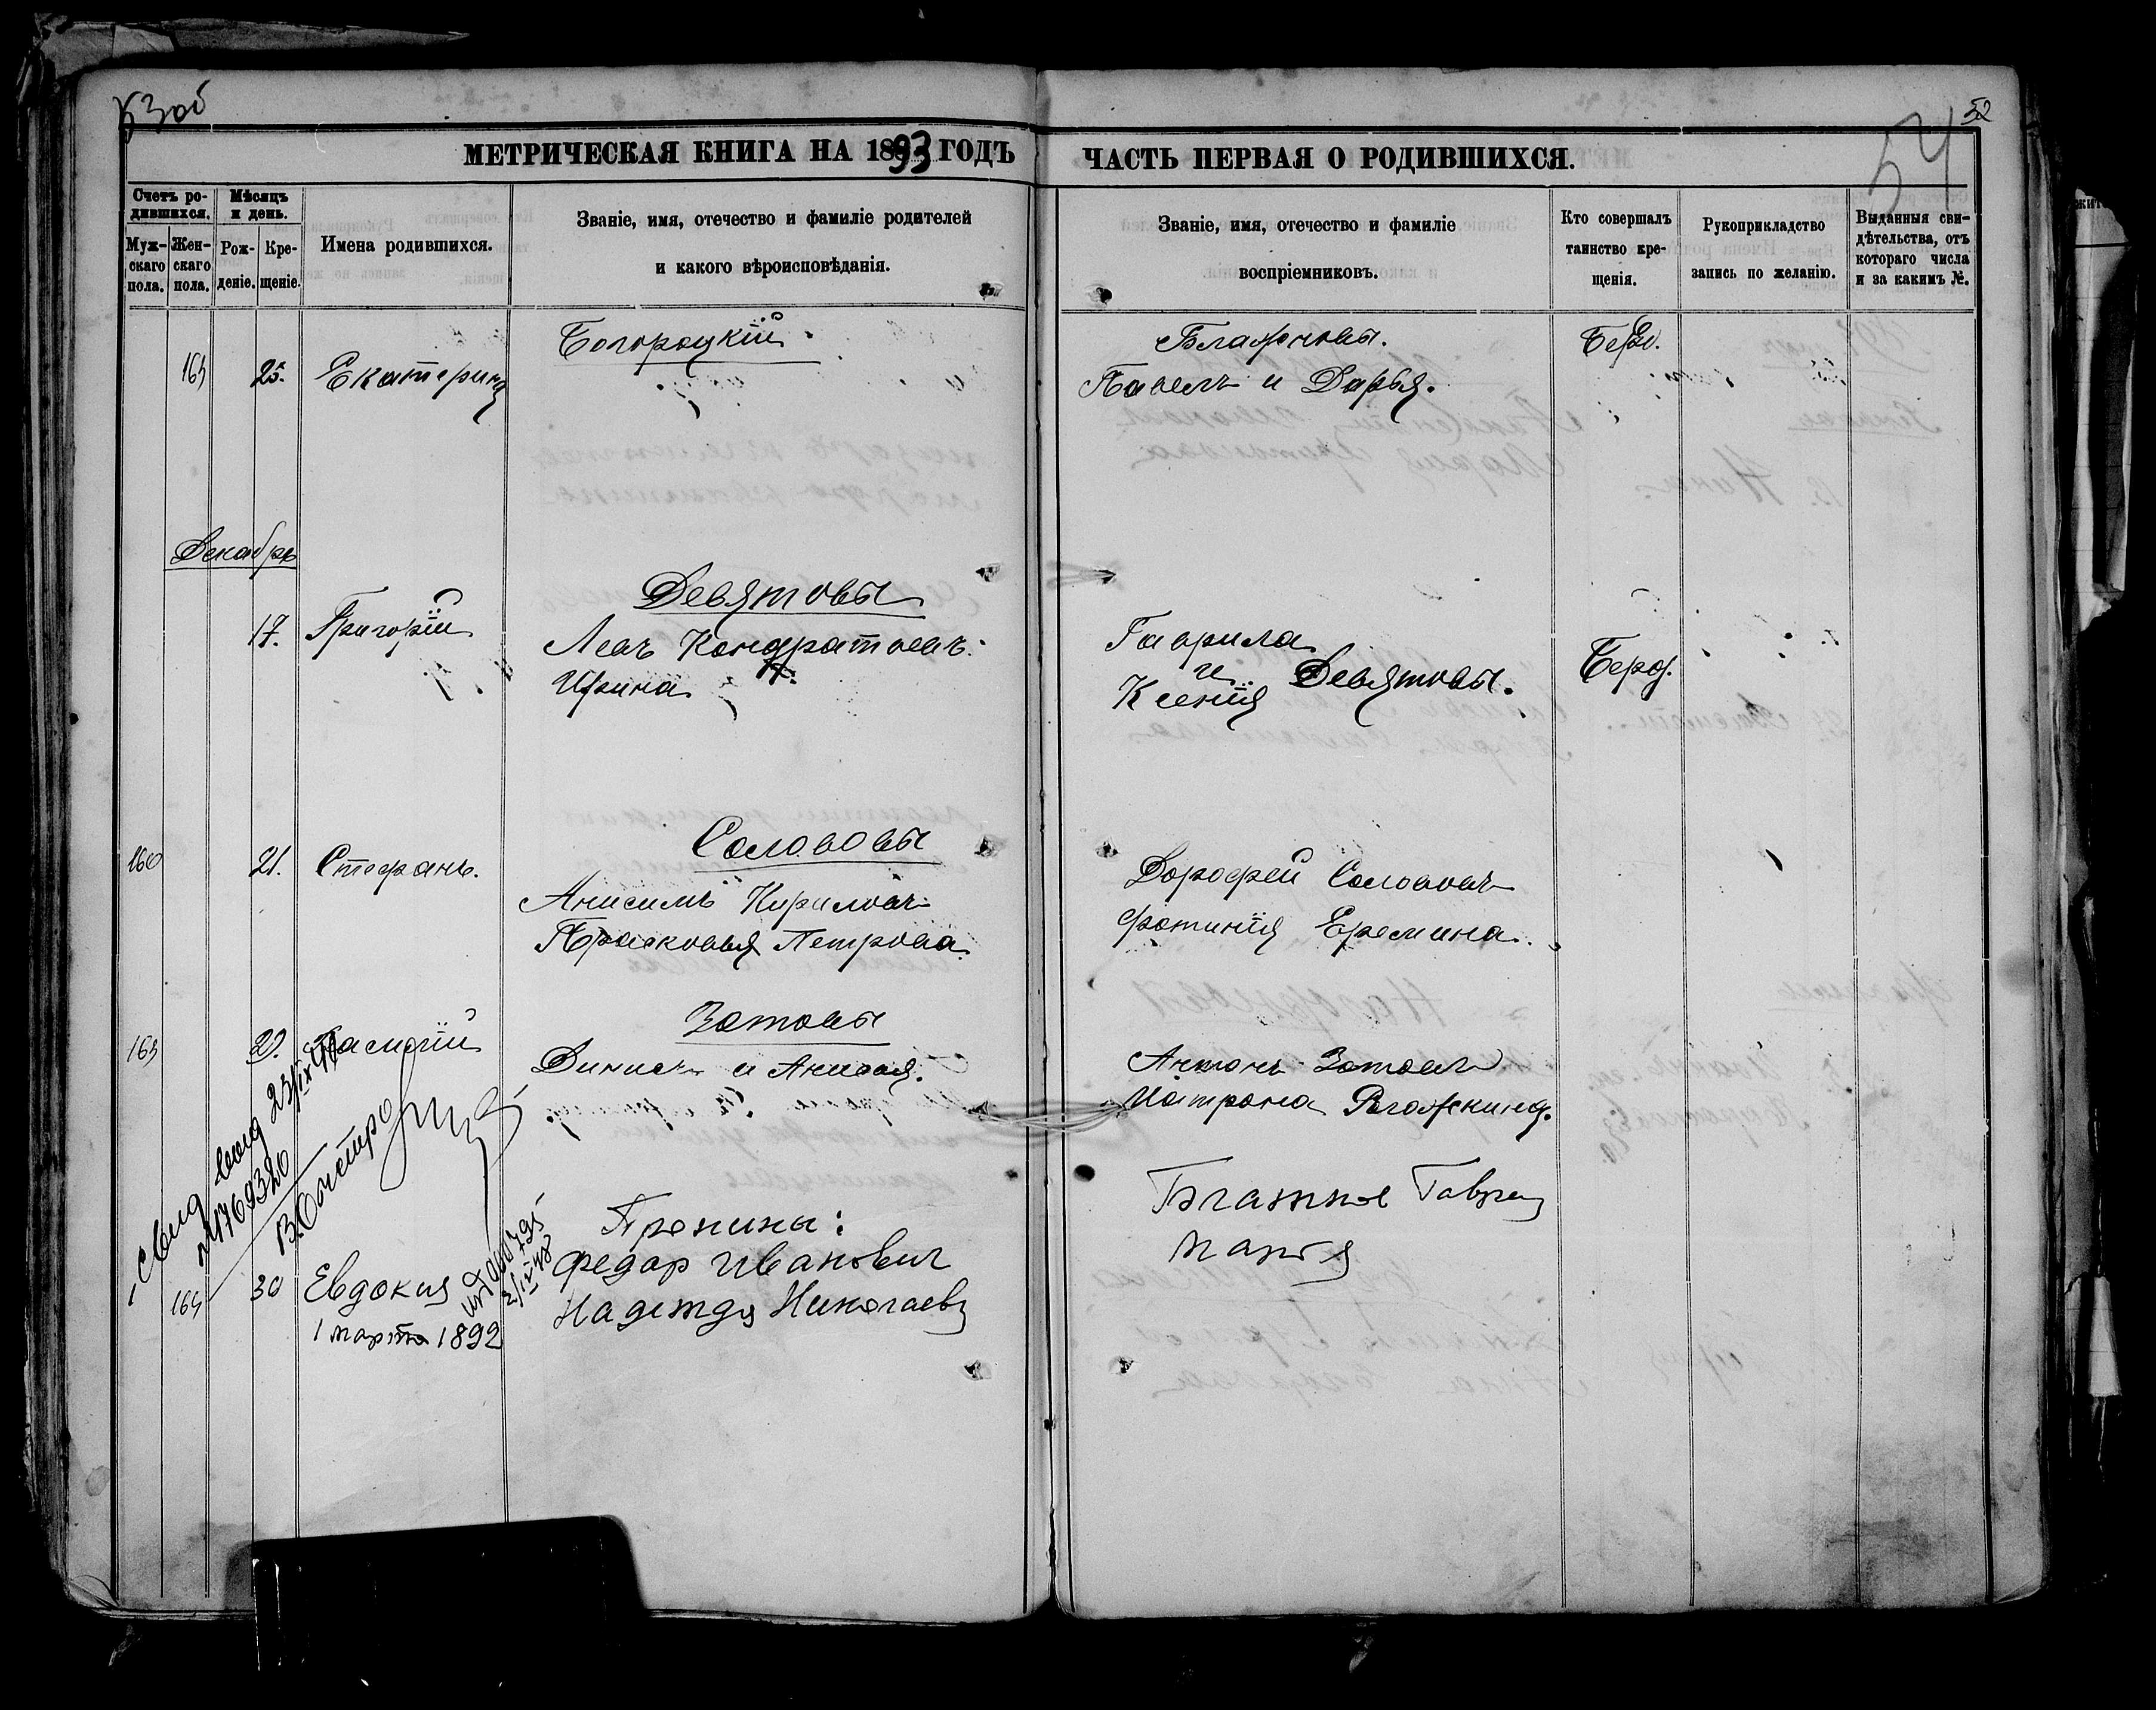 53об
52
54
МЕТРИЧЕСКАЯ КНИГА НА 1893 ГОДЪ
ЧАСТЬ ПЕРВАЯ О РОДИВШИХСЯ.
Счетъ ро-
дившихся.
Муж-
скаго
пола.
Жен-
скаго
пола.
Мѣсяцъ
и день.
Рож-
деніе.
Кре-
щеніе.
Имена родившихся.
Званіе, имя, отечество и фамиліе родителей
и какого вѣроисповѣданія.
Званіе, имя, отечество и фамиліе
воспріемниковъ.
Кто совершалъ
таинство кре-
щенія.
Рукоприкладство
запись по желанію.
Выданныя сви-
дѣтельства, отъ
котораго числа
и за какимъ №.
25. Екатерина
Богороцкій
Блаженовы.
Павелъ и Дарья.
Декабрь
17. Григорій
Девятовы
Левъ Кондратьевъ.
Ирина
Гаврила
и
Ксенія
Девятовы.
Берд.
160
21. Стефанъ.
Солововы
Анисимъ Кириловъ
Прасковья Петрова.
Дорофей Солововъ
Фотинія Еремина.
Зотовы
Динисъ и Анисья.
Антонъ Зотовъ
30 Евдокия
1 марта 1892
Пронины:
Федор Иванович
Надежда Николаев
Гаврил
Марья